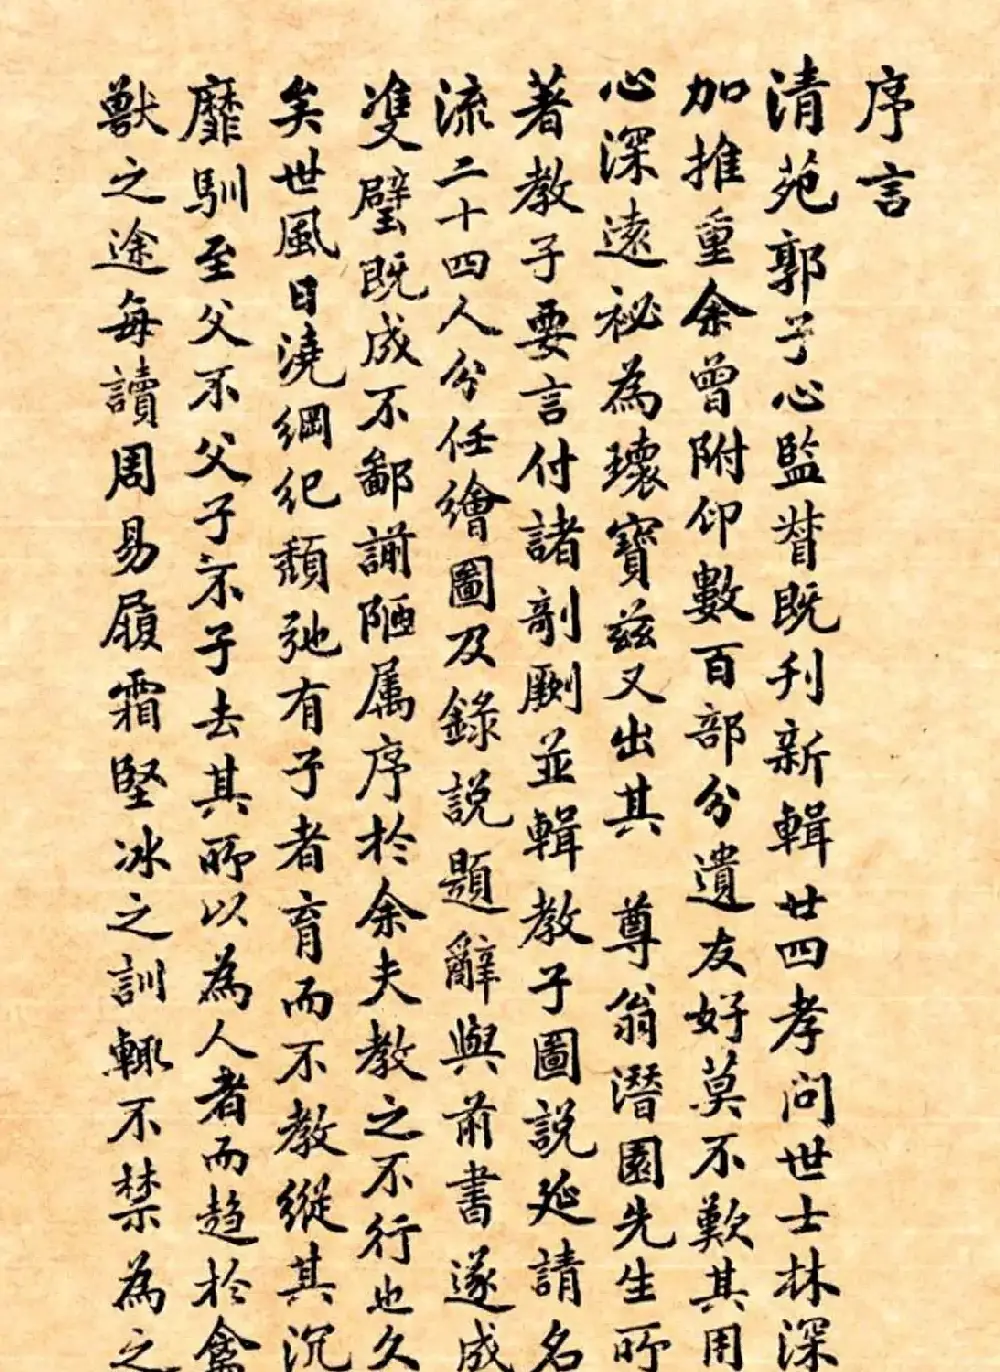 序言
清苑郭子心監督既刋新輯廿四孝问世士林深
加推重余曾附仰數百部分遺友好莫不歎其用
心深遠祕為瓌寶兹又出其 尊翁潛園先生所
著教子要言付諸剞劂並輯教子圖説延請名
流二十四人分任繪圖及錄説題辭與前書遂成
雙璧既成不鄙謭陋属序於余夫教之不行也久
矣世風日澆綱紀頽弛有子者育而不教縱其沉
靡馴至父不父子不子去其所以為人者而趋於禽
獸之途每讀周易履霜堅冰之訓輒不禁為之